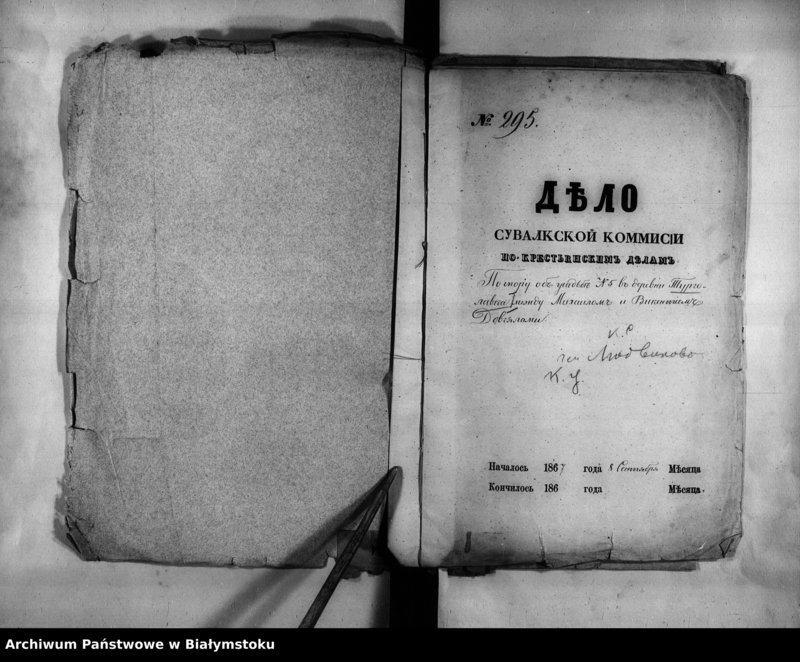 № 295.
ДѢЛО
СУВАЛКСКОЙ КОММИСІИ
ПО-КРЕСТЬЯНСКИМЪ ДѢЛАМЪ
По спору объ усадьбѣ №5 въ деревни Турго-
лавка между Михаиломъ и Викентіемъ
Довялами.
К. С
гм Людвиново
К. У
Началось 1867 года 8 Сентября Мѣсяца
Кончилось 186 года Мѣсяца.
Archiwum Państwowe w Białymstoku